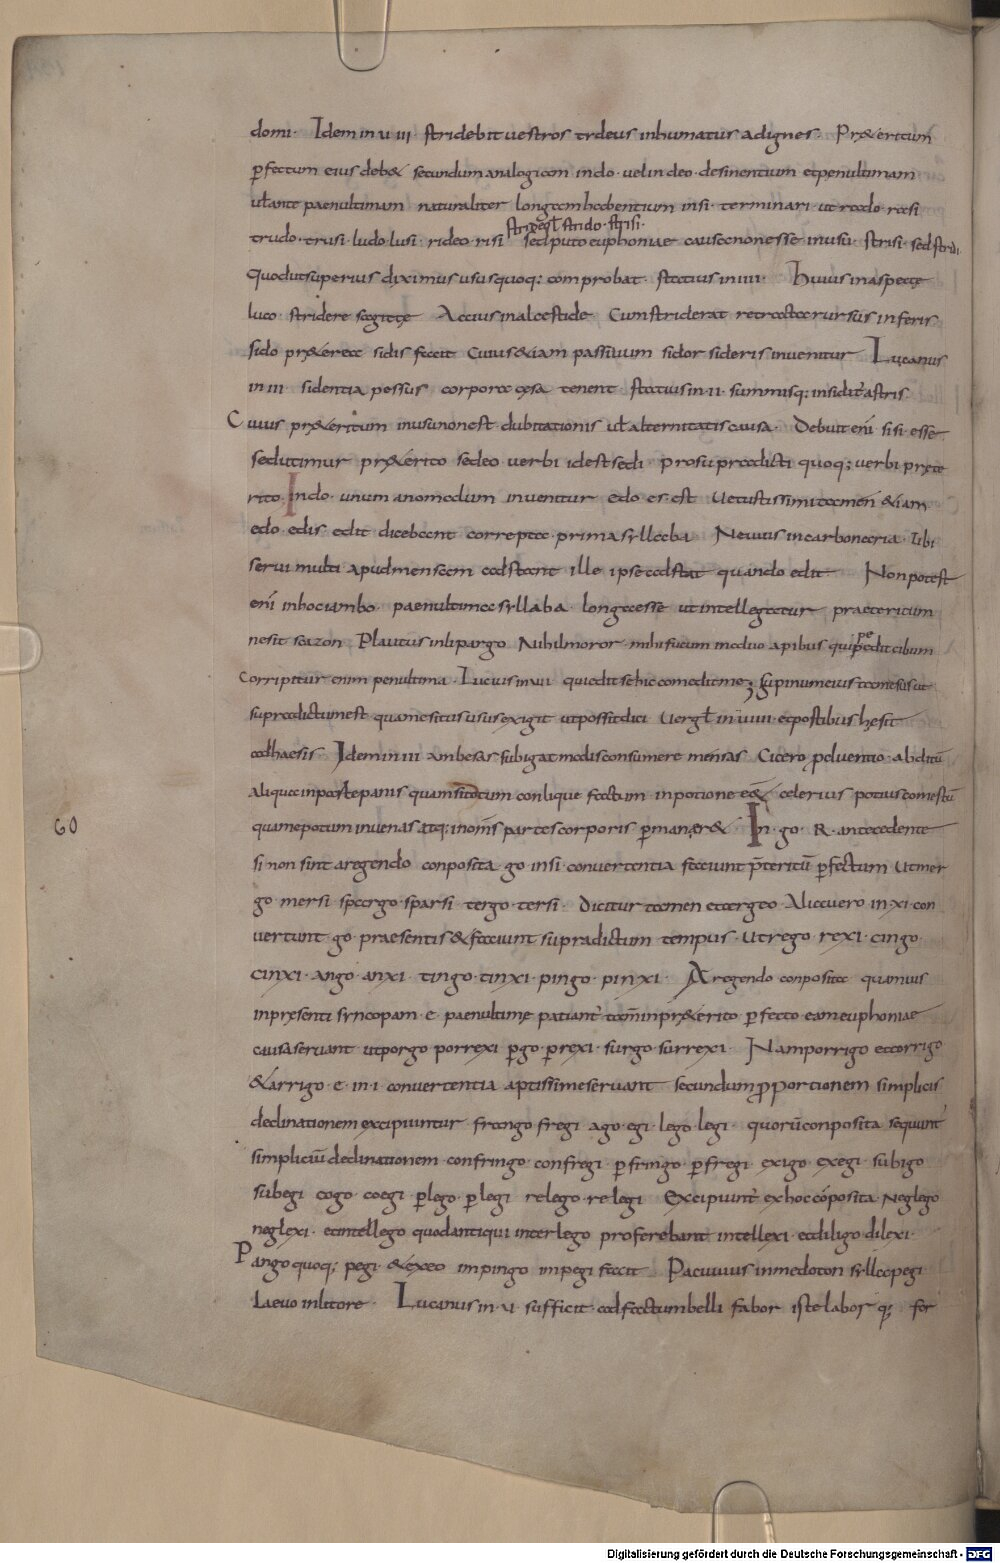 domi. Idem in VIII. stridebit vestros tydeus inhumatus ad ignes. Pr&eritum
pfectum eius deb& secundum analogiam in do. vel in deo. desinentium et penultimam
vł ante paenultimam naturaliter longam habentium in si. terminari. ut rado. rasi
stridegł strido. strisi.
trudo. trusi. ludo lusi. rideo. risi sed puto euphoniae causa non esse in usu. strisi. sed stridi.
Quod ut superius diximus usus quoq; comprobat. statius in IIII. Huius in aspectę
luco stridere sagittę Accius in alcestide. Cum striderat retracta rursus inferis.
sido pr&erea sidis facit Cuius &iam passiuum sidor sideris inuenitur Lucanus
in III sidentia pessus corpora cęsa tenent. Statius in II. summisq; insidit astris
Cuius pr&eritum in usu non est. dubitationis uł alternitatis causa. Debuit eni sisi esse
sed utimur pr&erito sedeo verbi id est sedi pro supradicti quoq; verbi pręte
rito. In do. unum anomodum inuenitur edo es est Vetustissimi tamen &iam
edo edis edit dicebant correpta prima syllaba Neuius in carbonaria. Tibi
serui multi apud mensam adstant ille ipse adstat quando edit Non potest
eni in hoc iambo. paenultima syllaba. longa esse ut intellegatur praeteritum
ne sit scazon Plautus in lipargo Nihil moror. mihi fucum in aduo apibus qui peredit cibum
Corripitur enim penultima. Lucius in VII qui edit se hic comedit me; supinum eius tam esus ut
supradictum est quam esitus usus exigit ut possit dici Vergł in VIIII. et postibus hęsit
adhaesis. Idem in III ambesas subigat modis consumere mensas Cicero p cluentio. abditū
aliqua in parte panis quam sit totum conlique factum in potione e& celerius potius comestū
60
quam epotum in uenas atq; in omis partes corporis pmanar& In. go. R. antecedente
si non sint a regendo conposita go in si. convertentia faciunt p̄teritū pfectum Ut mer
go mersi spargo. sparsi tergo. tersi. Dicitur tamen et tergeo. Alia uero in xi. con
vertunt go praesentis & faciunt supradictum tempus. Ut rego rexi. cingo
cinxi. ango. anxi. tingo. tinxi. pingo. pinxi. A regendo conposita quamuis
in pręsenti syncopam e paenultimę patiant tam in pr&erito pfecto eam euphoniae
causa seruant ut porgo porrexi pgo prexi. surgo surrexi. Nam porrigo et corrigo
& arrigo. e. in. i convertentia aptissime seruant secundum pportionem simplicis
declinationem excipiuntur frango fregi ago. egi. lego. legi. quorū conposita sequunt
simpliciū declinationem confringo. confregi pfringo. pfregi exigo exegi subigo
subegi cogo. coegi. plego. plegi relego. relegi Excipiunt ex hoc cōposita. Neglego
neglexi. et intellego quod antiqui interlego proferebant intellexi et diligo. dilexi.
Pango quoq; pegi. & ex eo impingo impegi facit Pacuuius in medo ton syllapegi
Laeuo in litore. Lucanus in. VI sufficit ad factum belli fabor iste labor q; for
Digitalisierung gefördert durch die Deutsche Forschungsgemeinschaft - DFG